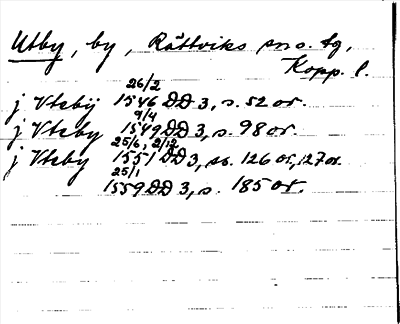 Utby, by, Rättviks sn o. tg,
Kopp. l.
26/2
j Vtebij 1546 DD 3, s. 52 or.
9/4
j Vteby 1549 DD 3, s. 98 or.
25/6, 2/12
j Vteby 1551 DD 3, ss. 126 or, 127 or.
25/1
1559 DD 3, s. 185 or.